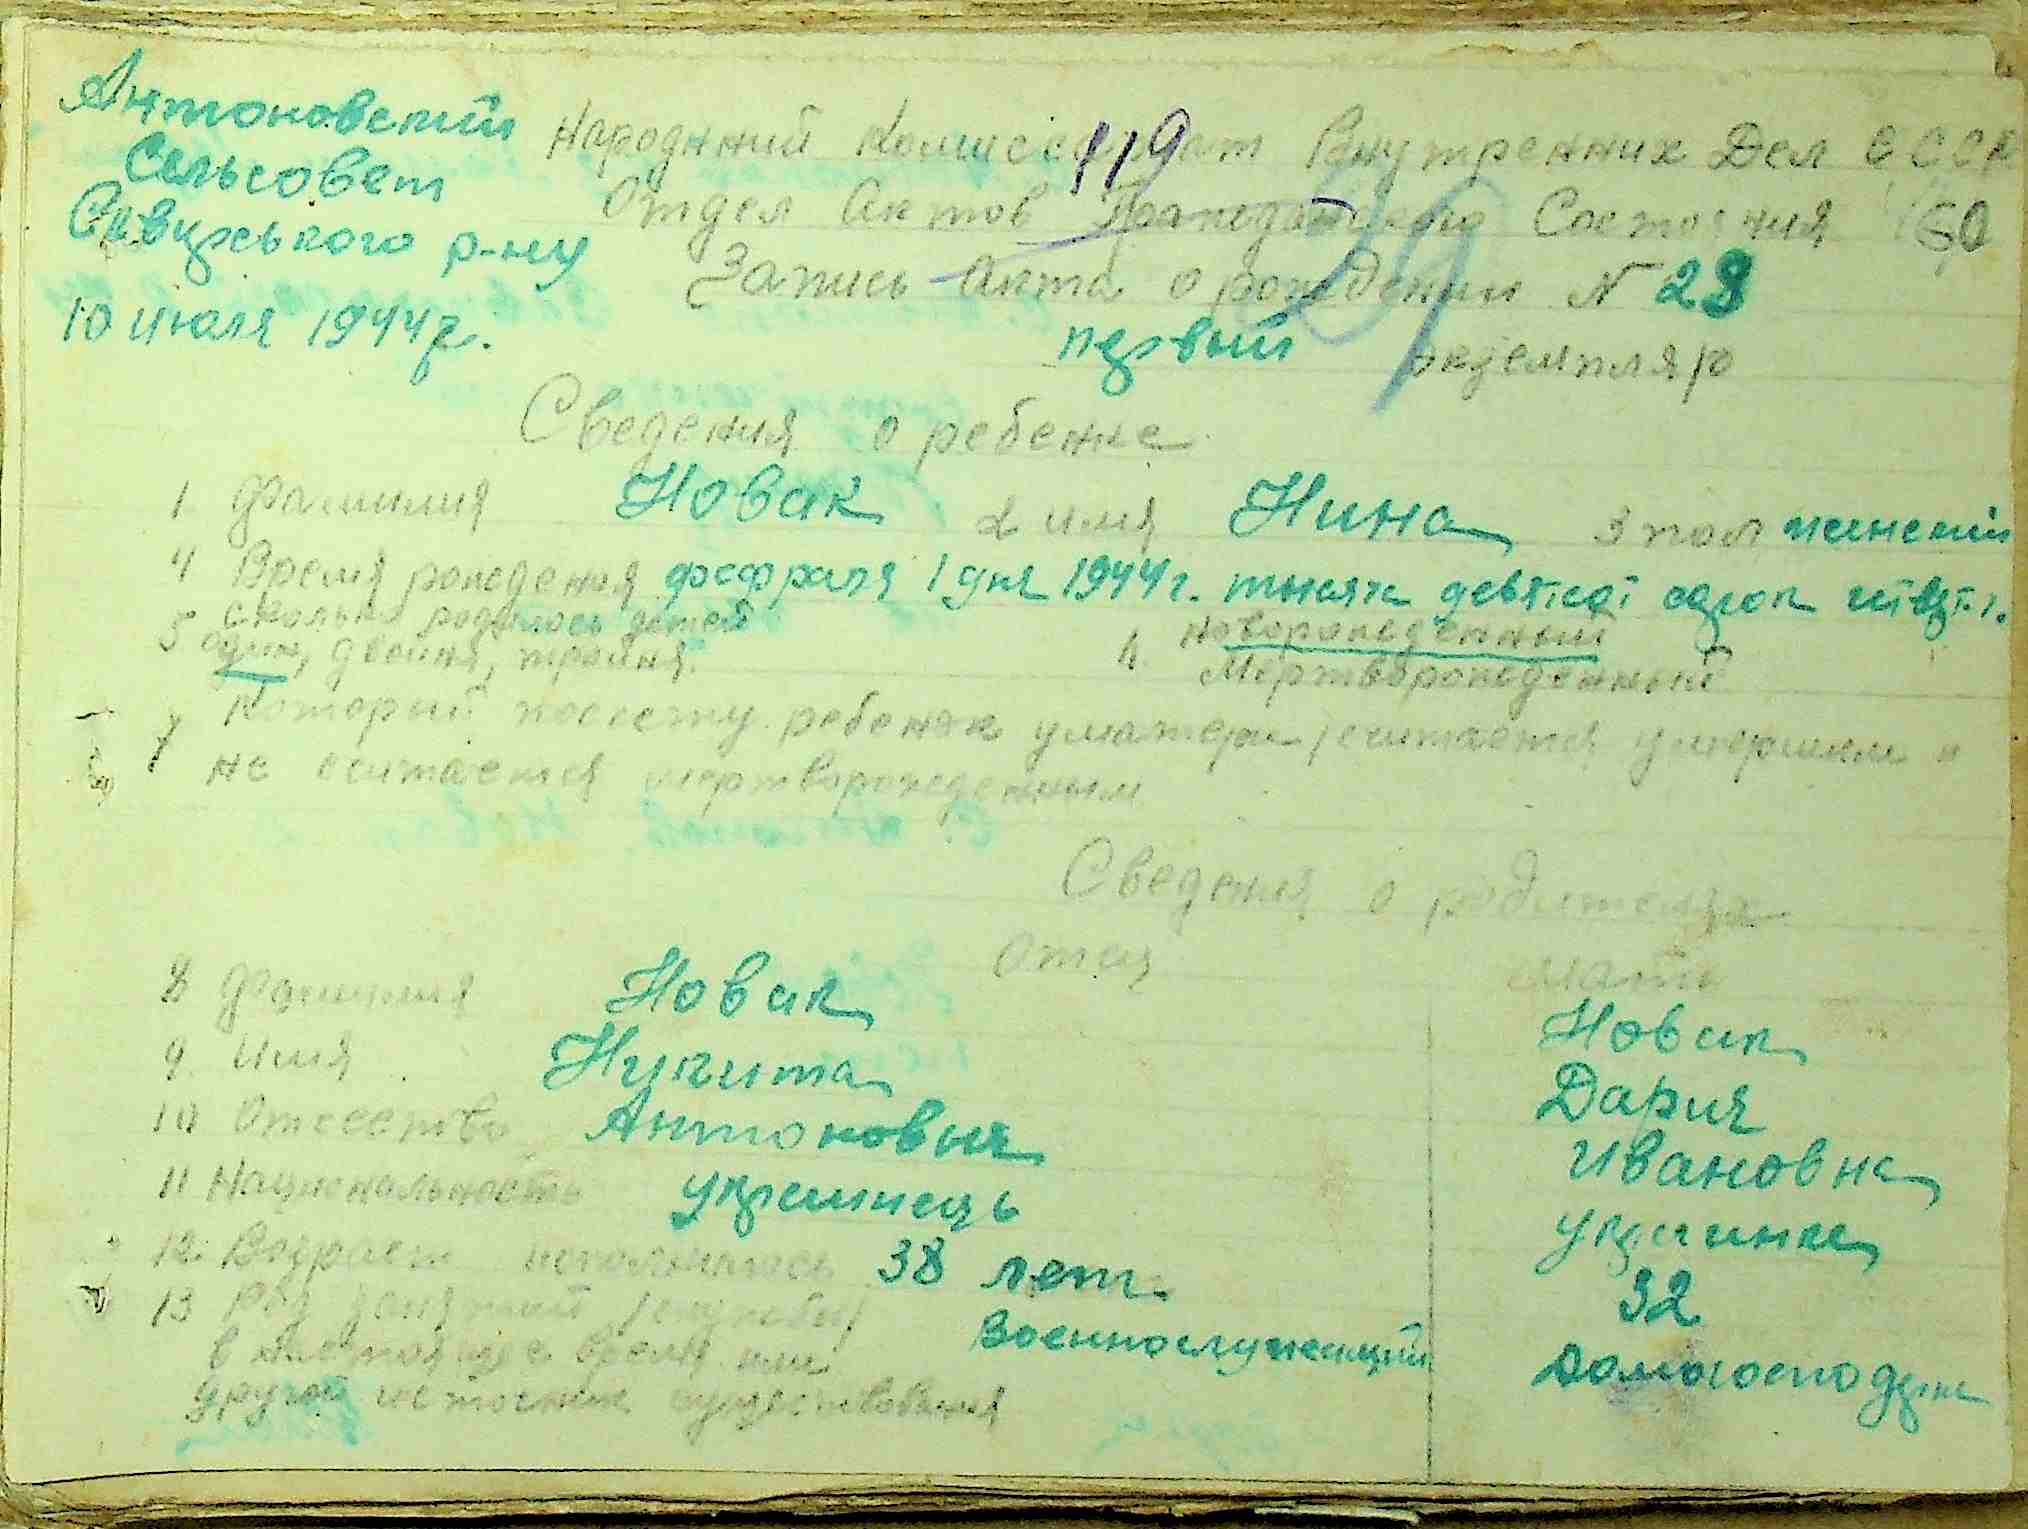 Антоновский
Сельсовет
Сквирського р-ну
10 июля 1944 г.
119
Народний Комиссариат Внутренних Дел СССР
Отдел Актов Гражданского Состояния
Запись Акта о рождении N 29
первый экземпляр
Сведения о ребенке
1. Фамилия Новак 2 имя Нина 3 пол женский
4 Время рождения февраля 1 дня 1944 г. тысяча девятсот сорок
5 Сколько родилось детей
один, двойня, тройня.
новорожденный
мертворожденный
7 Который по счету ребенок у матери считается умершим и
не считается мертворожденным
Сведения о родителях
Отец Мать
8 Фамилия Новак Новак
9 Имя Никита Дария
10 Отчество Антонович Ивановна
11 Национальность украинець украинка
12 Возраст исполнилось 38 лет 32
13 Род занятий /службы/
в настоящее время или
другой источник существования
военнослужащий